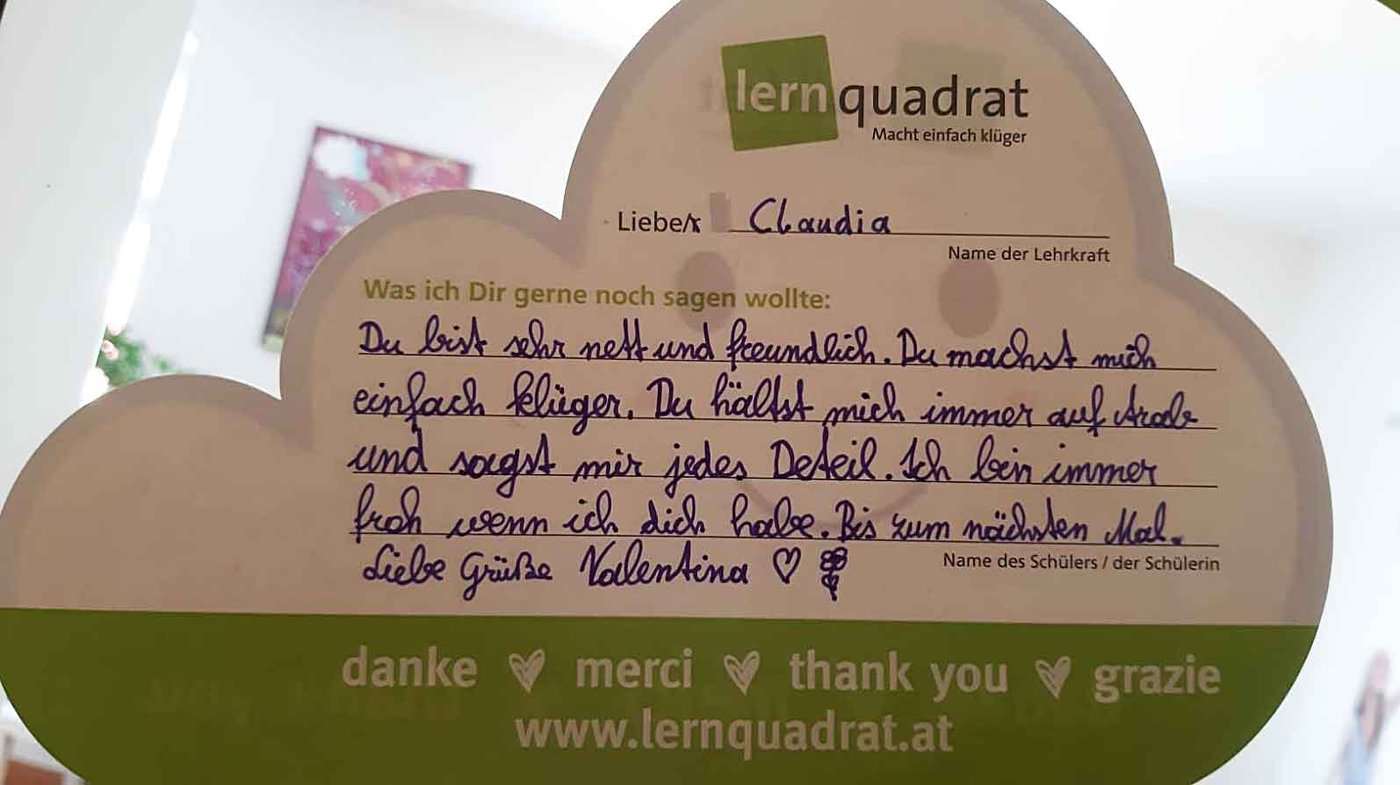 lernquadrat
Macht einfach klüger
Liebe/r Claudia
Name der Lehrkraft
Was ich Dir gerne noch sagen wollte:
Du bist sehr nett und freundlich. Du machst mich
einfach klüger. Du hältst mich immer auf Trab
und sagst mir jedes Deteil. Ich bin immer
froh wenn ich dich habe. Bis zum nächsten Mal.
Liebe Grüße Valentina ♡
Name des Schülers / der Schülerin
danke merci thank you grazie
www.lernquadrat.at